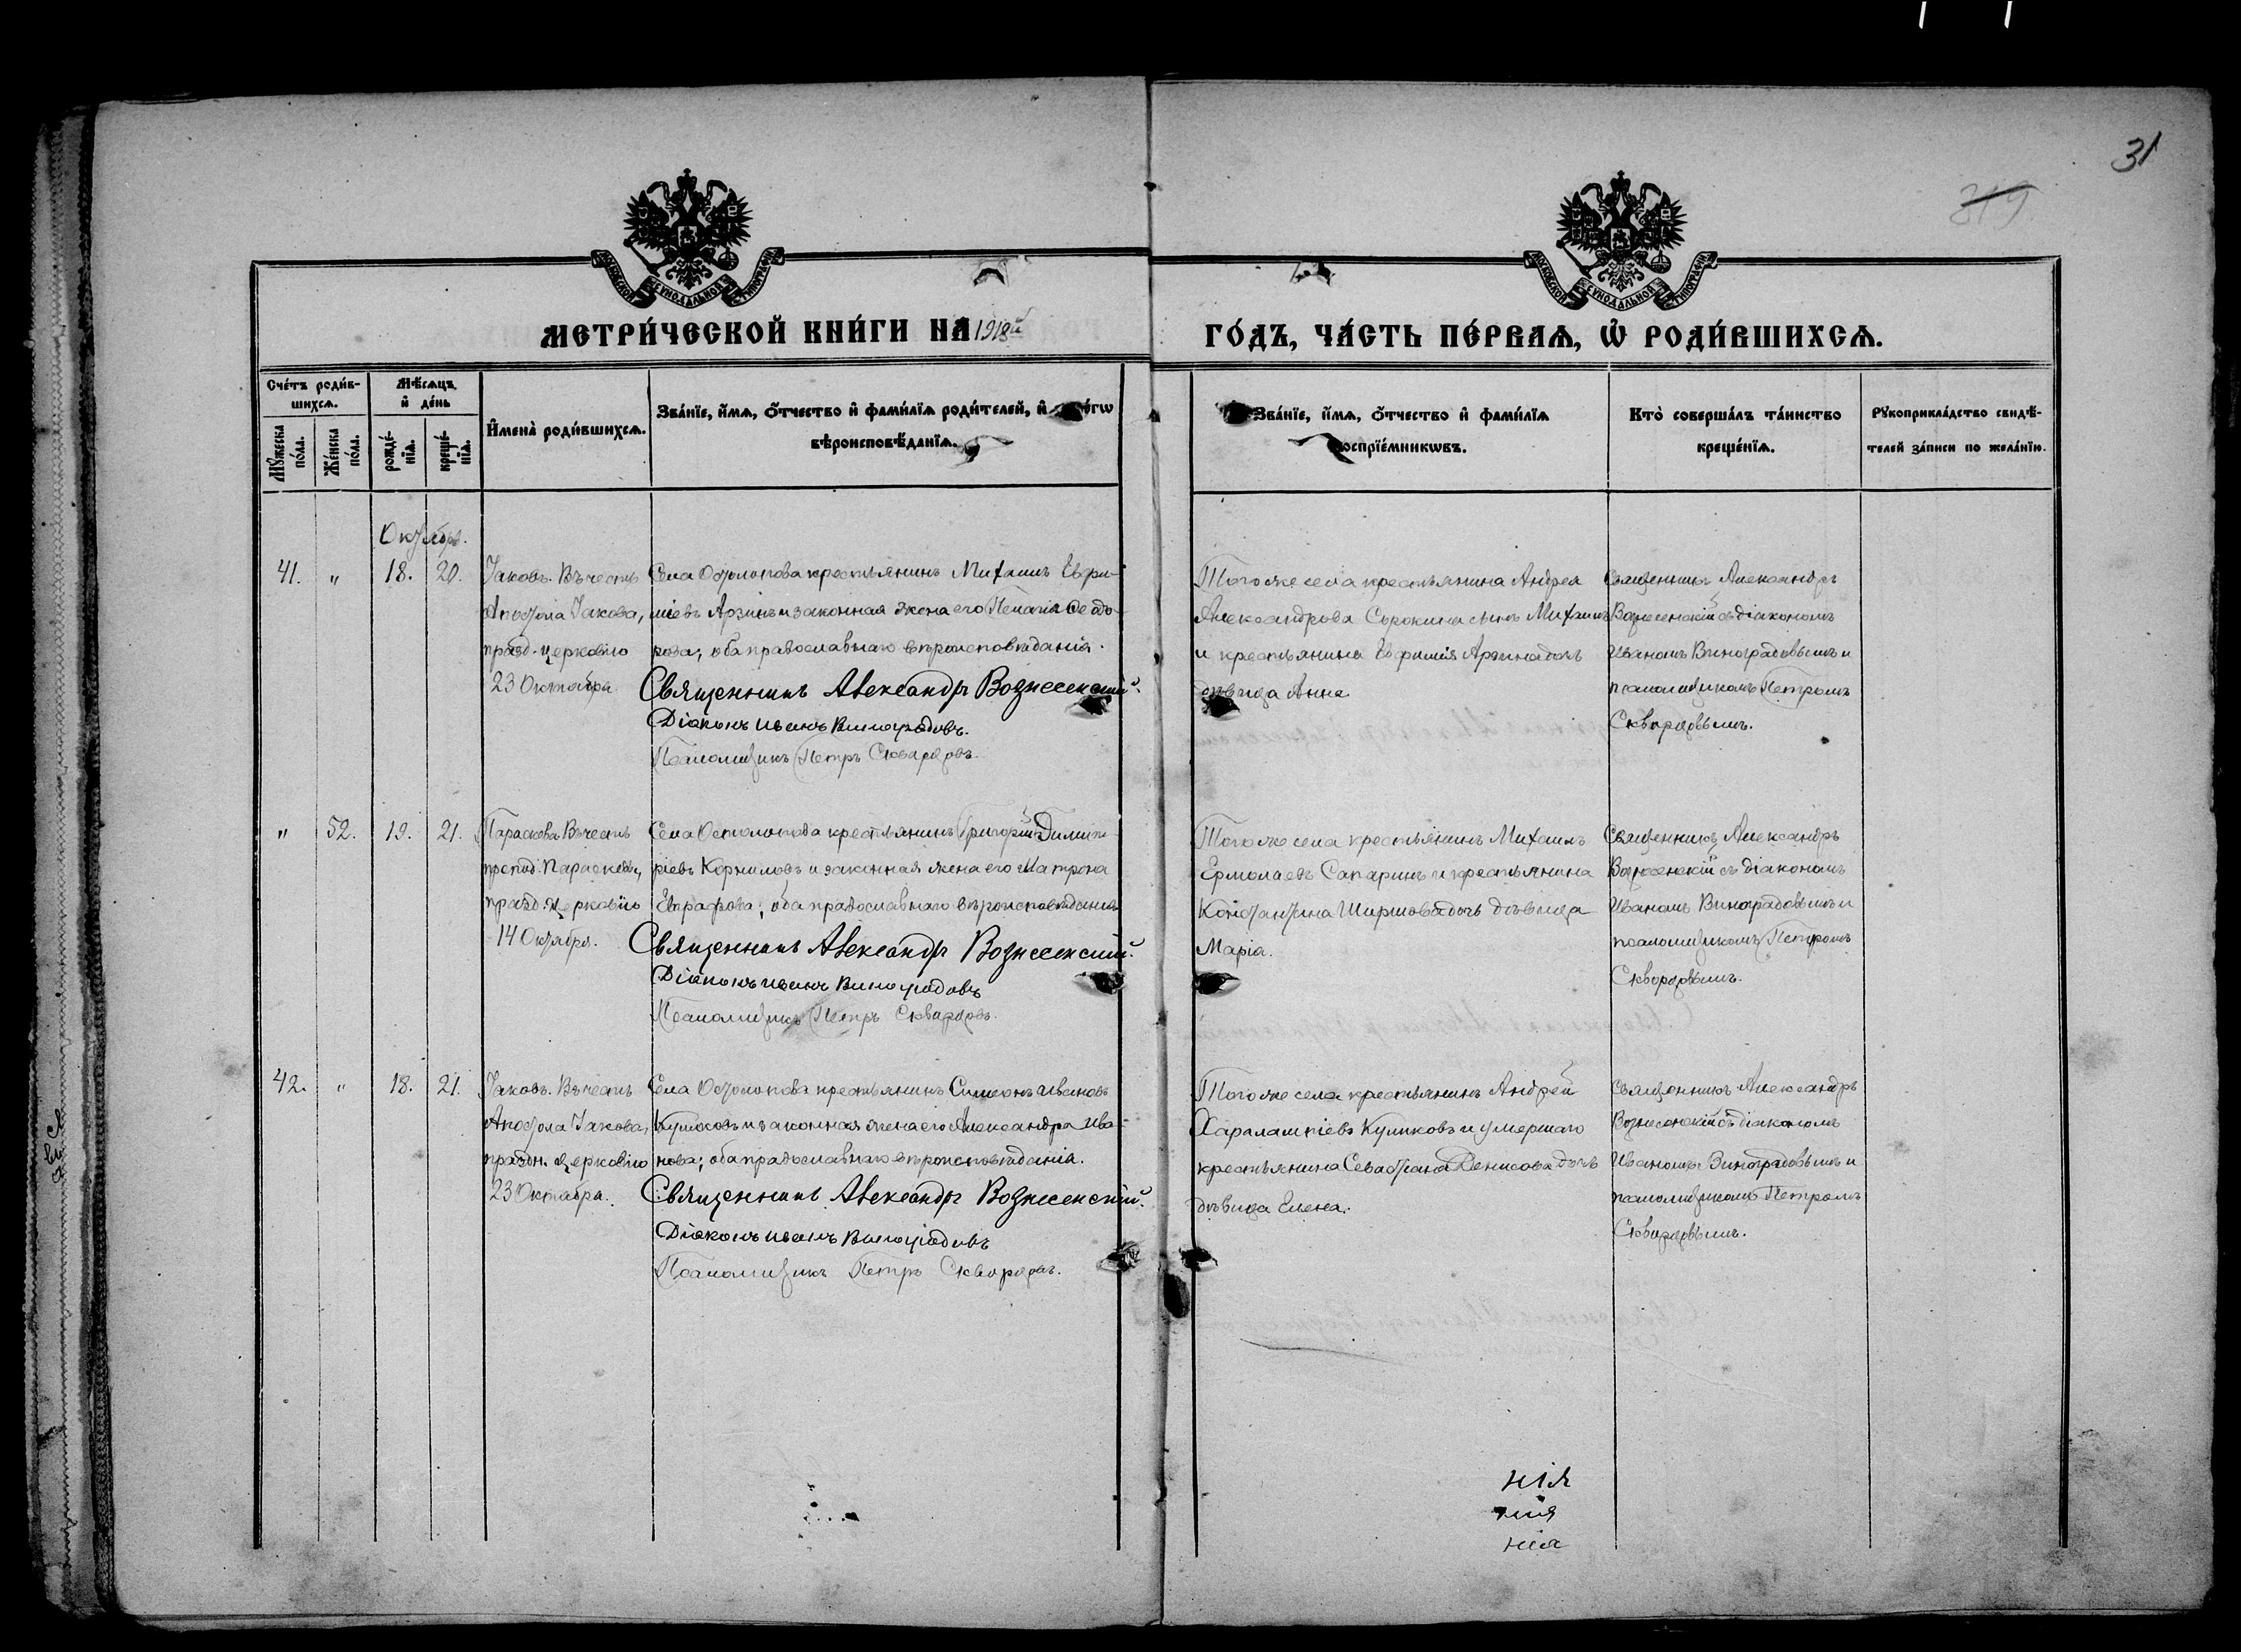 31
319
МОСКОВСКОЙ СУНОДАЛЬНОЙ ТИПОГРАФІИ
МОСКОВСКОЙ СУНОДАЛЬНОЙ ТИПОГРАФІИ
МЕТРИ́ЧЕСКОЙ КНИ́ГИ НА 1918й
ГО́ДЪ, ЧА́СТЬ ПЕ́РВАѦ, Ѡ҆ РОДИ́ВШИХСѦ.
Сче́тъ роди́в-
шихсѧ.
Мѣ́сѧцъ
и҆ де́нь
Мꙋ́жеска по́ла.
Же́нска по́ла.
рожде́-нїѧ.
креще́-нїѧ.
И҆мена̀ роди́вшихсѧ.
Зва́нїе, и҆́мѧ, ѻ҆́тчество и҆ фами́лїѧ роди́телей, и҆
вѣроисповѣ́данїѧ.
Зва́нїе, и҆́мѧ, ѻ҆́тчество и҆ фами́лїѧ
воспрїе́мникѡвъ.
Кто̀ соверша́лъ та́инство
креще́нїѧ.
Рꙋкоприкла́дство свидѣ́-
телей за́писи по жела́нїю.
Октябрь.
41. " 18. 20.
Іаковъ. Въ честь
Апостола Іакова,
празд. церковію
23 Октября.
Села Остолопова крестьянинъ Михаилъ Евфи-
міевъ Арзинъ и законная жена его Пелагія Ѳеодо-
рова; оба православнаго вѣроисповѣданія.
Священникъ Александръ Вознесенскій.
Діаконъ Иванъ Виноградовъ.
Псаломщикъ Петръ Скворцовъ.
Того же села крестьянина Андрея
Александрова Сорокина сынъ Михаилъ
и крестьянина Евфимія Арзина дочь
дѣвица Анна
Священникъ Александръ
Вознесенскій съ діакономъ
Иваномъ Виноградовымъ и
псаломщикомъ Петромъ
Скворцовымъ.
" 52. 19. 21.
Параскева. Въ честь
препод. Параскевы,
празд. церковію
14 Октября.
Села Остолопова крестьянинъ Григорій Димит-
ріевъ Корниловъ и законная жена его Матрона
Евграфова; оба православнаго вѣроисповѣданія
Священникъ Александръ Вознесенскій.
Діаконъ Иванъ Виноградовъ
Псаломщикъ Петръ Скворцовъ.
Того же села крестьянинъ Михаилъ
Ермолаевъ Сапаринъ и крестьянина
Константина Ширшова дочь дѣвица
Марія.
Священникъ Александръ
Вознесенскій съ діакономъ
Иваномъ Виноградовымъ и
псаломщикомъ Петромъ
Скворцовымъ.
42. " 18. 21.
Іаковъ. Въ честь
Апостола Іакова,
праздн. церковію
23 Октября.
Села Остолопова крестьянинъ Симеонъ Ивановъ
Куликовъ и законная жена его Александра Ива-
нова; оба православнаго вѣроисповѣданія.
Священникъ Александръ Вознесенскій.
Діаконъ Иванъ Виноградовъ
Псаломщикъ Петръ Скворцовъ.
Того же села крестьянинъ Андрей
Харалампіевъ Куликовъ и умершаго
крестьянина Севастіана Денисова дочь
дѣвица Елена.
Священникъ Александръ
Вознесенскій съ діакономъ
Иваномъ Виноградовымъ и
псаломщикомъ Петромъ
Скворцовымъ.
нія
нія
нія